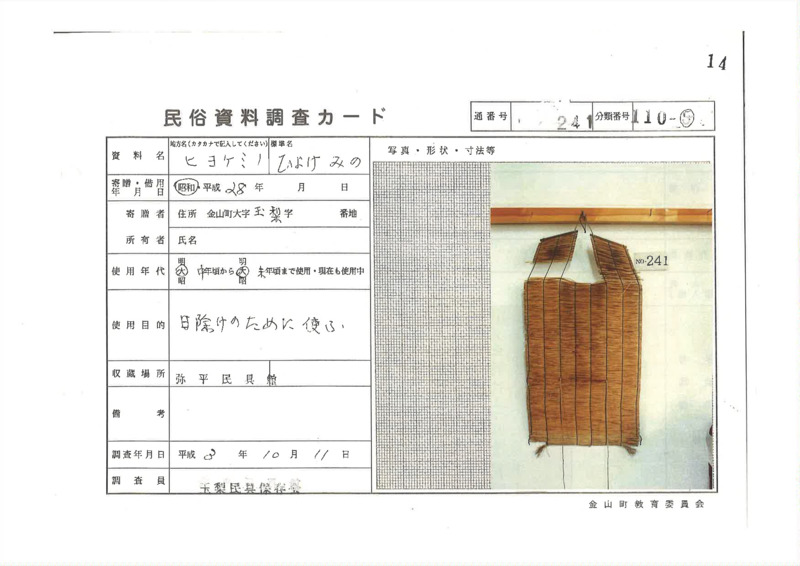 14
民俗資料調査カード
通番号 241 分類番号 110-
資料名
地方名(カタカナで記入してください) 標準名
ヒヨケミノ ひよけみの
写真・形状・寸法等
寄贈・借用年月日 昭和・平成 28年 月 日
寄贈者 住所 金山町大字 玉梨 字 番地
所有者 氏名
使用年代 明大昭 中年頃から 明大昭 末年頃まで使用・現在も使用中
使用目的 日除けのために使ふ
収蔵場所 弥平民具館
備考
調査年月日 平成 8年 10月 11日
調査員 玉梨民具保存会
No 241
金山町教育委員会